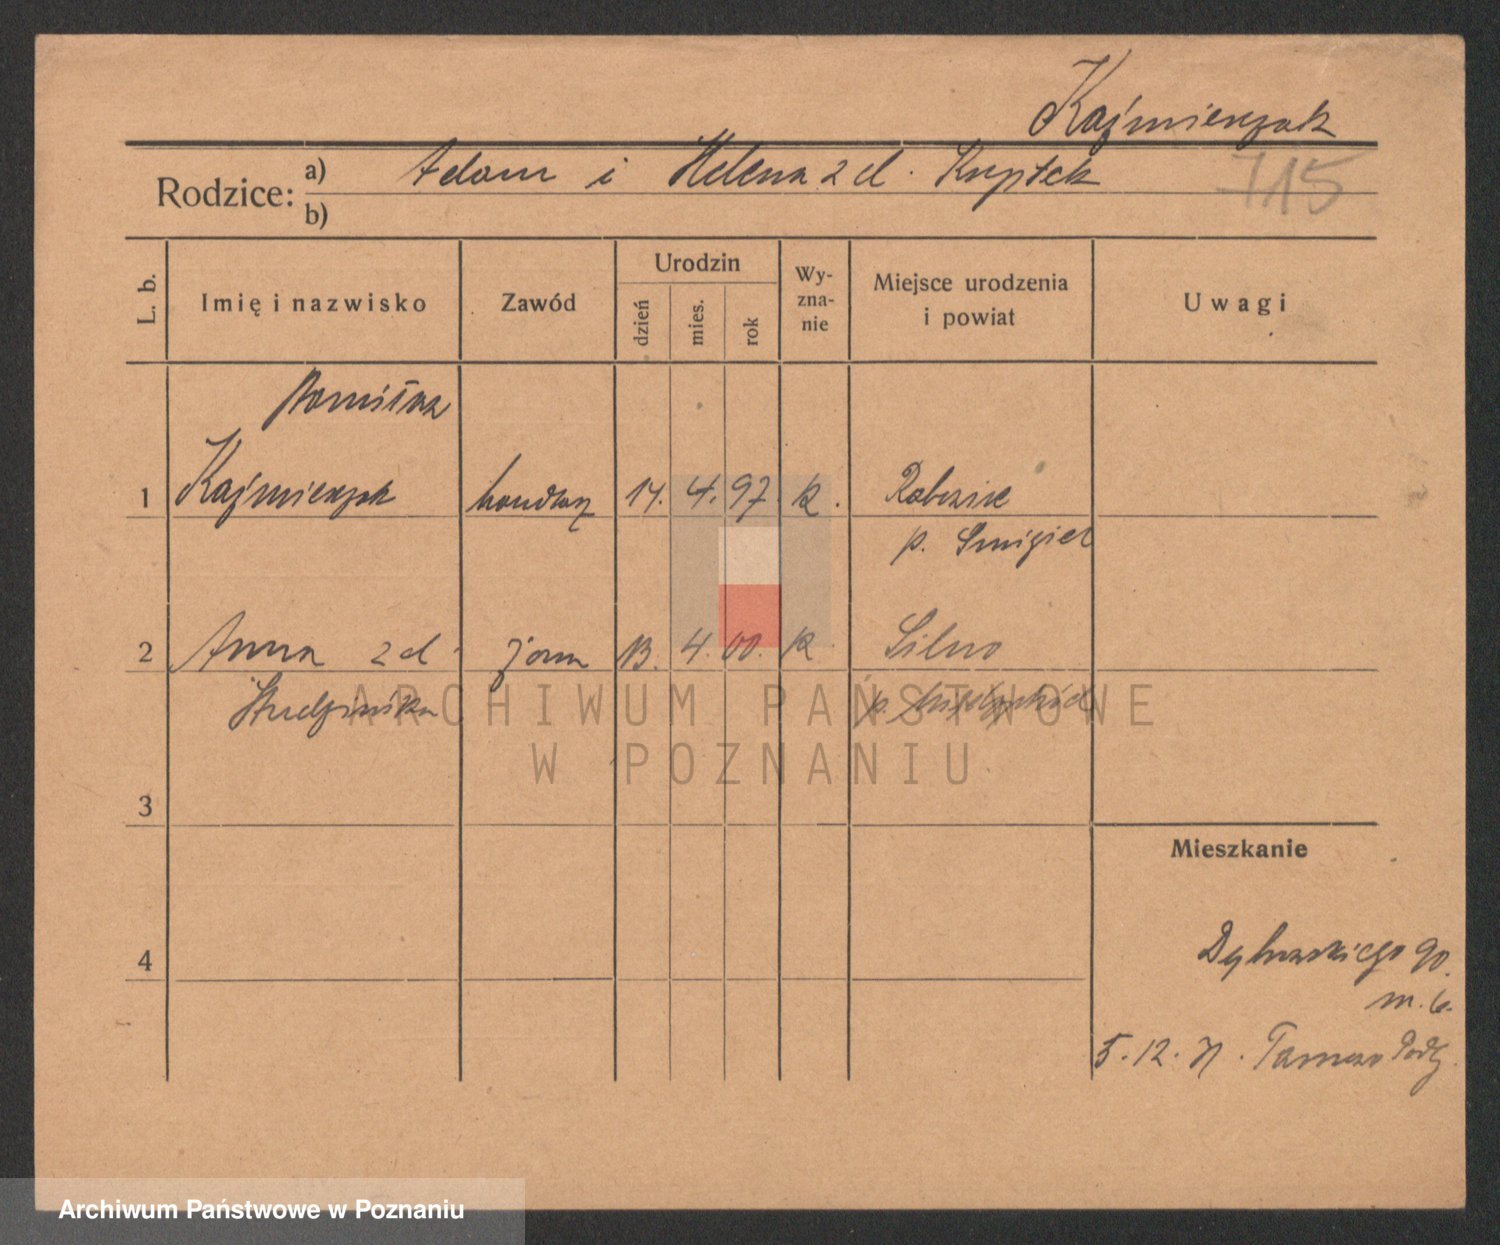 Kaźmierczak
Rodzice: a) Adam i Helena z d.
715
b)
L. b. Imię i nazwisko Zawód Urodzin dzień mies. rok Wyznanie Miejsce urodzenia i powiat Uwagi
1 Kaźmierczak handlarz 14. 4. 97. k.
p. Śmigiel
2 Anna z d. żona 13. 4. 00. k. Silno
Studzińska
3
Mieszkanie
4
Dąbrowskiego 90.
m. 6.
5.12.
ARCHIWUM PAŃSTWOWE
W POZNANIU
Archiwum Państwowe w Poznaniu